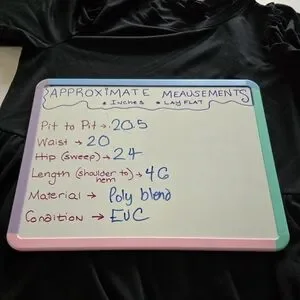 APPROXIMATE MEAUSEMENTS
• Inches • LAY FLAT
Pit to Pit → 20.5
Waist → 20
Hip (sweep) → 24
Length (shoulder to hem) → 46
Material → Poly blend
Condition → EUC